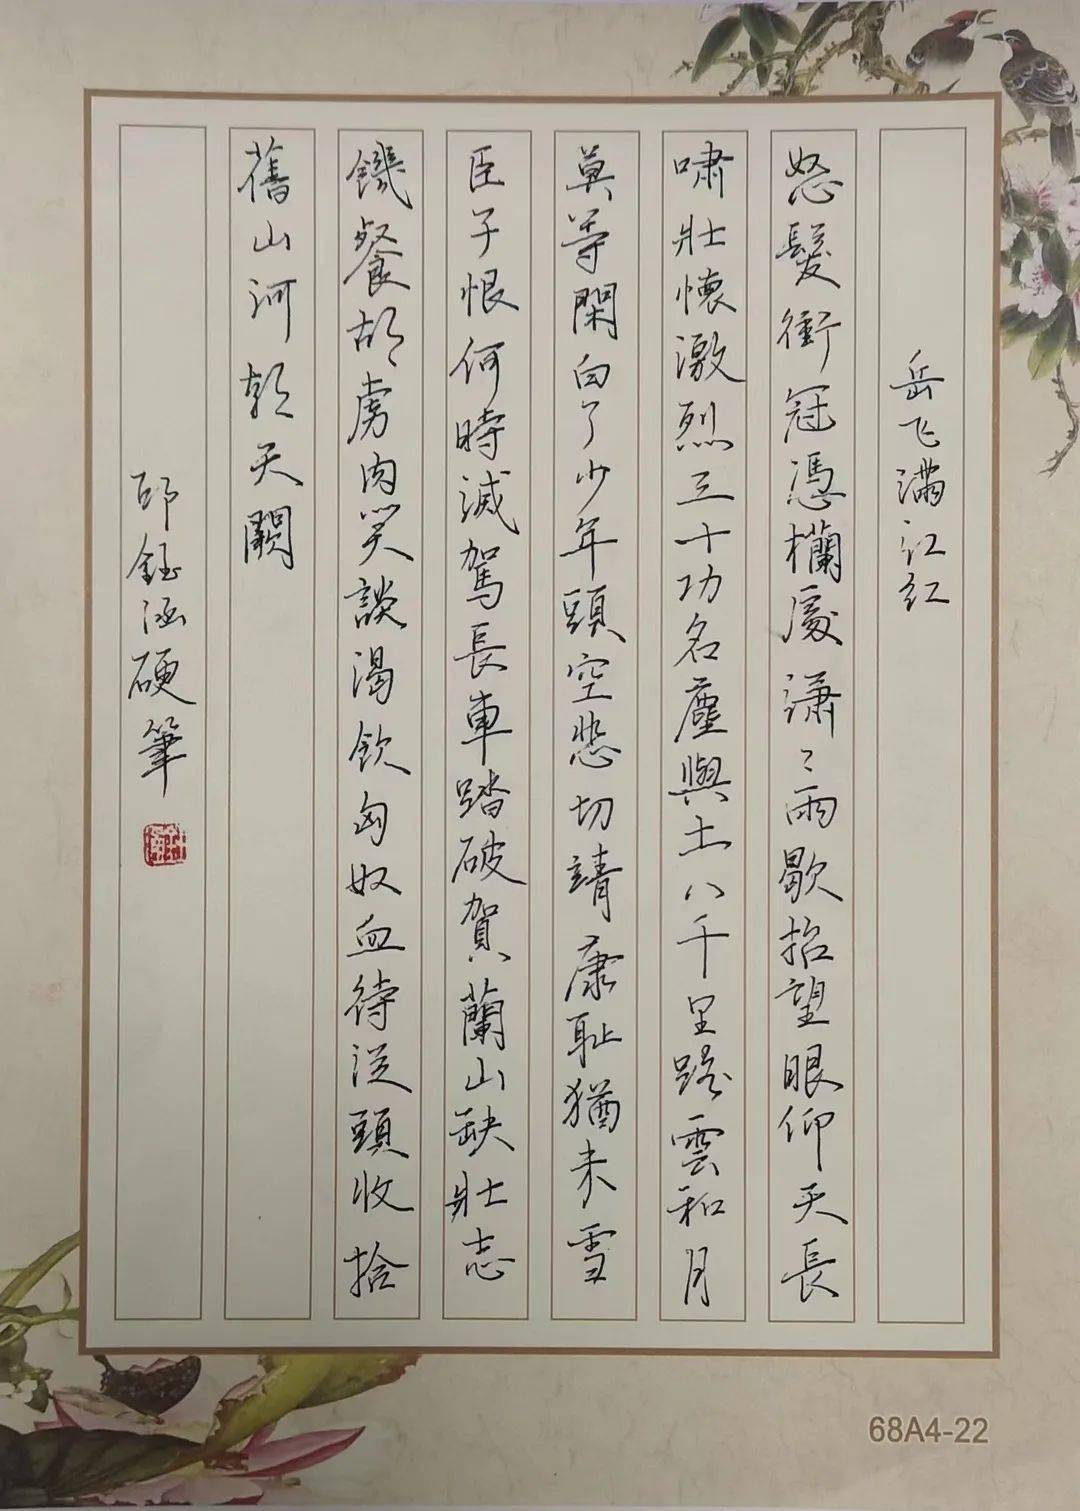 岳飞满江红
怒髮衝冠憑欄處潇〻雨歇抬望眼仰天長
啸壯懷激烈三十功名塵與土八千里路雲和月
莫等閑白了少年頭空悲切靖康耻猶未雪
臣子恨何時滅駕長車踏破賀蘭山缺壯志
饑餐胡虜肉笑談渴飲匈奴血待從頭收拾
舊山河朝天闕
邱鈺涵硬筆
68A4-22